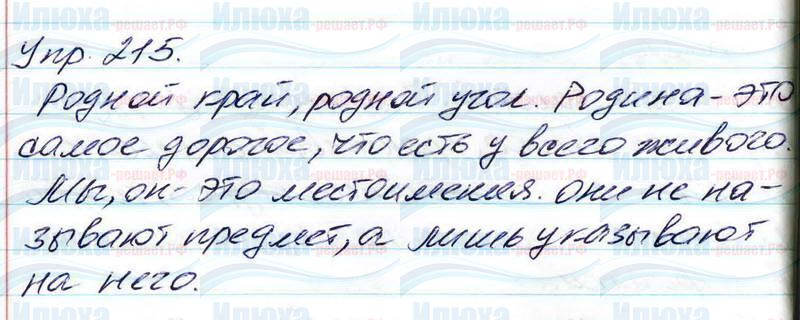 Упр. 215.
Родной край, родной угол. Родина - это
самое дорогое, что есть у всего живого.
Мы, он - это местоимения. Они не на-
зывают предмет, а лишь указывают
на него.
Илюха
-решает.РФ